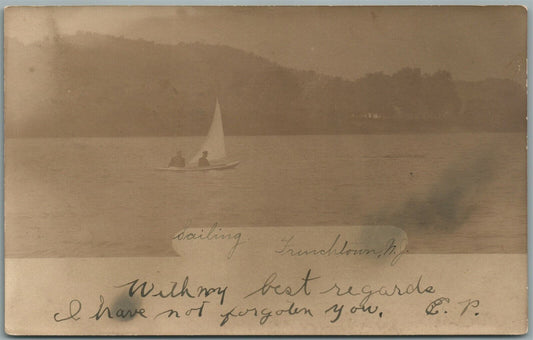 sailing Frenchtown, N.J.
With my best regards
I have not forgoten you. E. P.